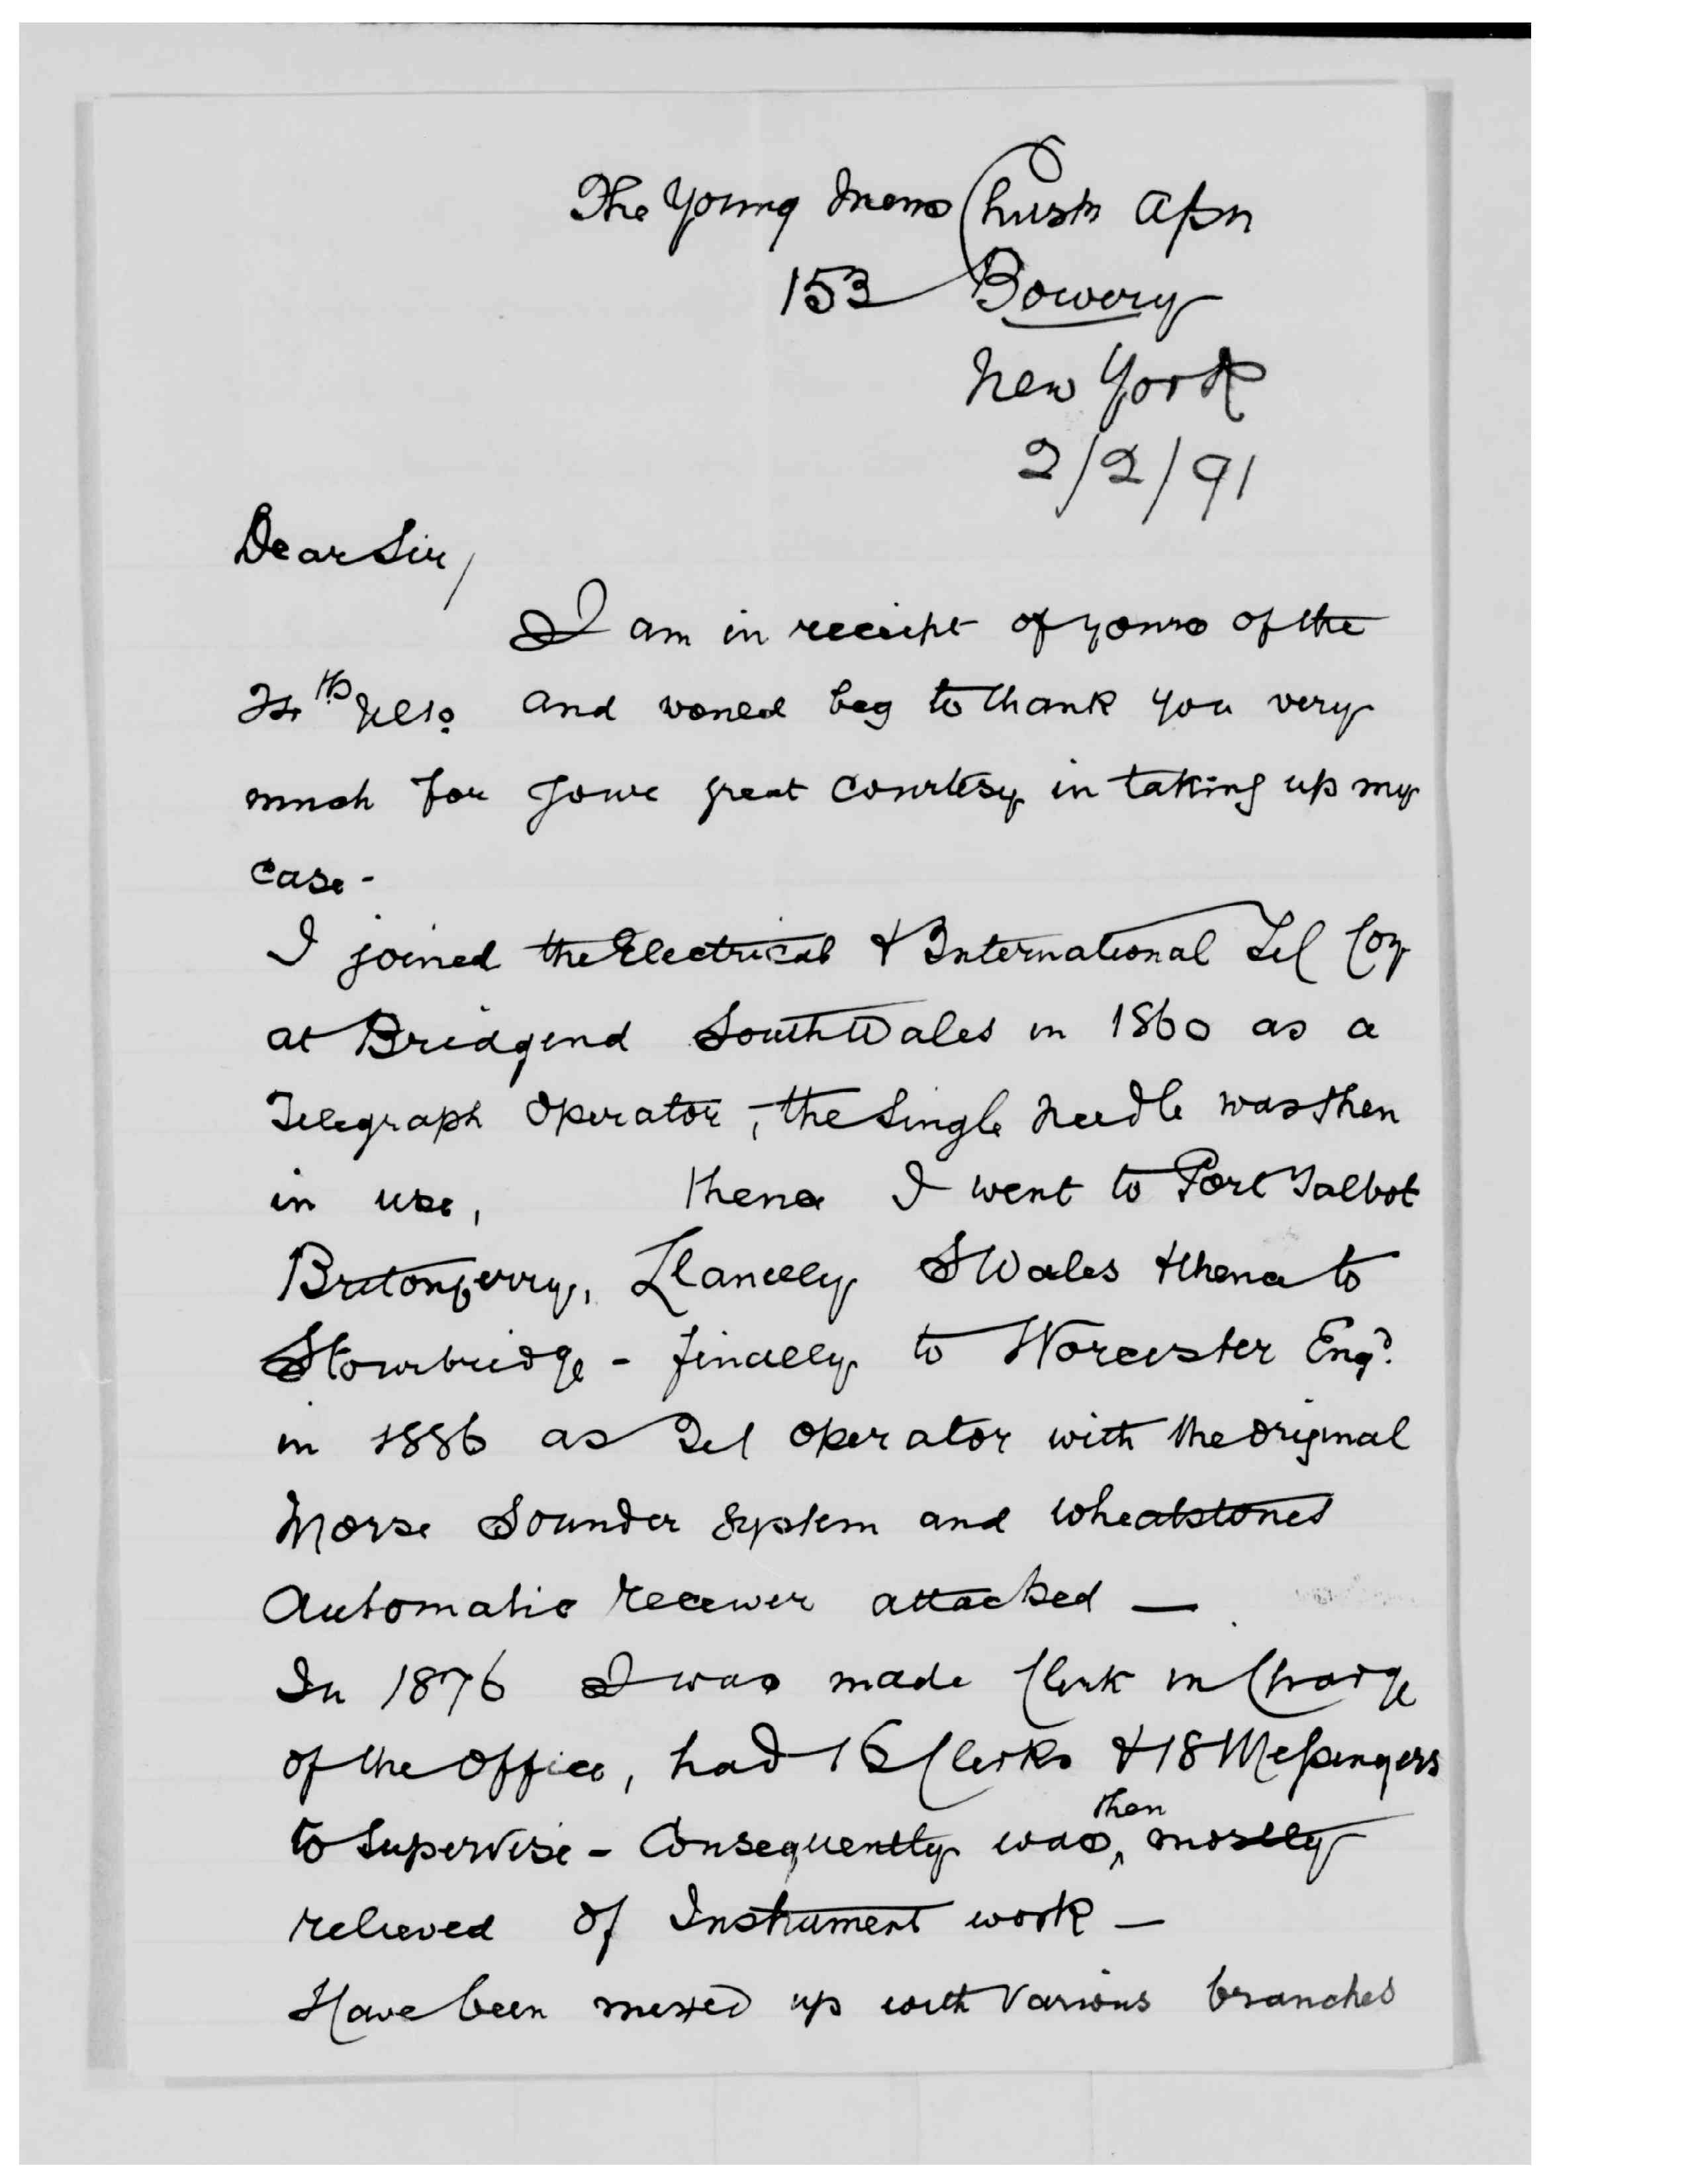 The Young Mens Christn Assn
153 Bowery
New York
2/2/91
Dear Sir,
I am in receipt of yours of the
and would beg to thank you very
much for your great courtesy in taking up my
case -
I joined the Electrical & International Tel Coy
at Bridgend South Wales in 1860 as a
Telegraph Operator, - the Single needle was then
in use, thence I went to Port Talbot
Britonferry, Llanelly S Wales & thence to
Stourbridge - finally to Worcester Engd.
in 1886 as Tel operator with the original
Morse Sounder System and Wheatstones
Automatic receiver attacked —
In 1876 I was made Clerk in Charge
of the Office, had 16 Clerks & 18 Messengers
to Supervise - Consequently was then mostly
relieved of Instrument work —
Have been mixed up with various branches